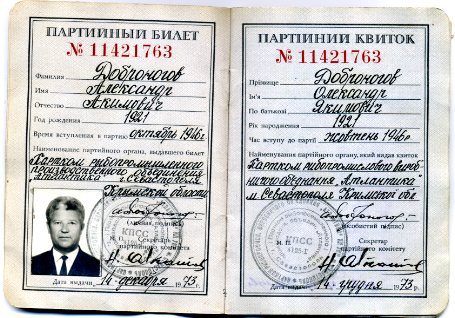 ПАРТИЙНЫЙ БИЛЕТ
№ 11421763
Фамилия Добгоногов
Имя Александр
Отчество Акимович
Год рождения 1921
Время вступления в партию октябрь 1946г.
Наименование партийного органа, выдавшего билет
Партком рыбопромышленного
производственного объединения
"Атлантика" г. Севастополя
Крымской области
(личная подпись)
М. П. Секретарь
партийного комитета
КПСС
Дата выдачи 14 декабря 1973г.
ПАРТІЙНИЙ КВИТОК
№ 11421763
Прізвище Добгоногов
Ім'я Олександр
По батькові Якимович
Рік народження 1921
Час вступу до партії жовтень 1946р.
Найменування партійного органу, який видав квиток
Партком рибопромислового вироб-
ничого об'єднання "Атлантика"
м. Севастополя Кримської обл.
(особистий підпис)
М. П. Секретар
партійного комітету
КПСС
Дата видачі 14 грудня 1973р.